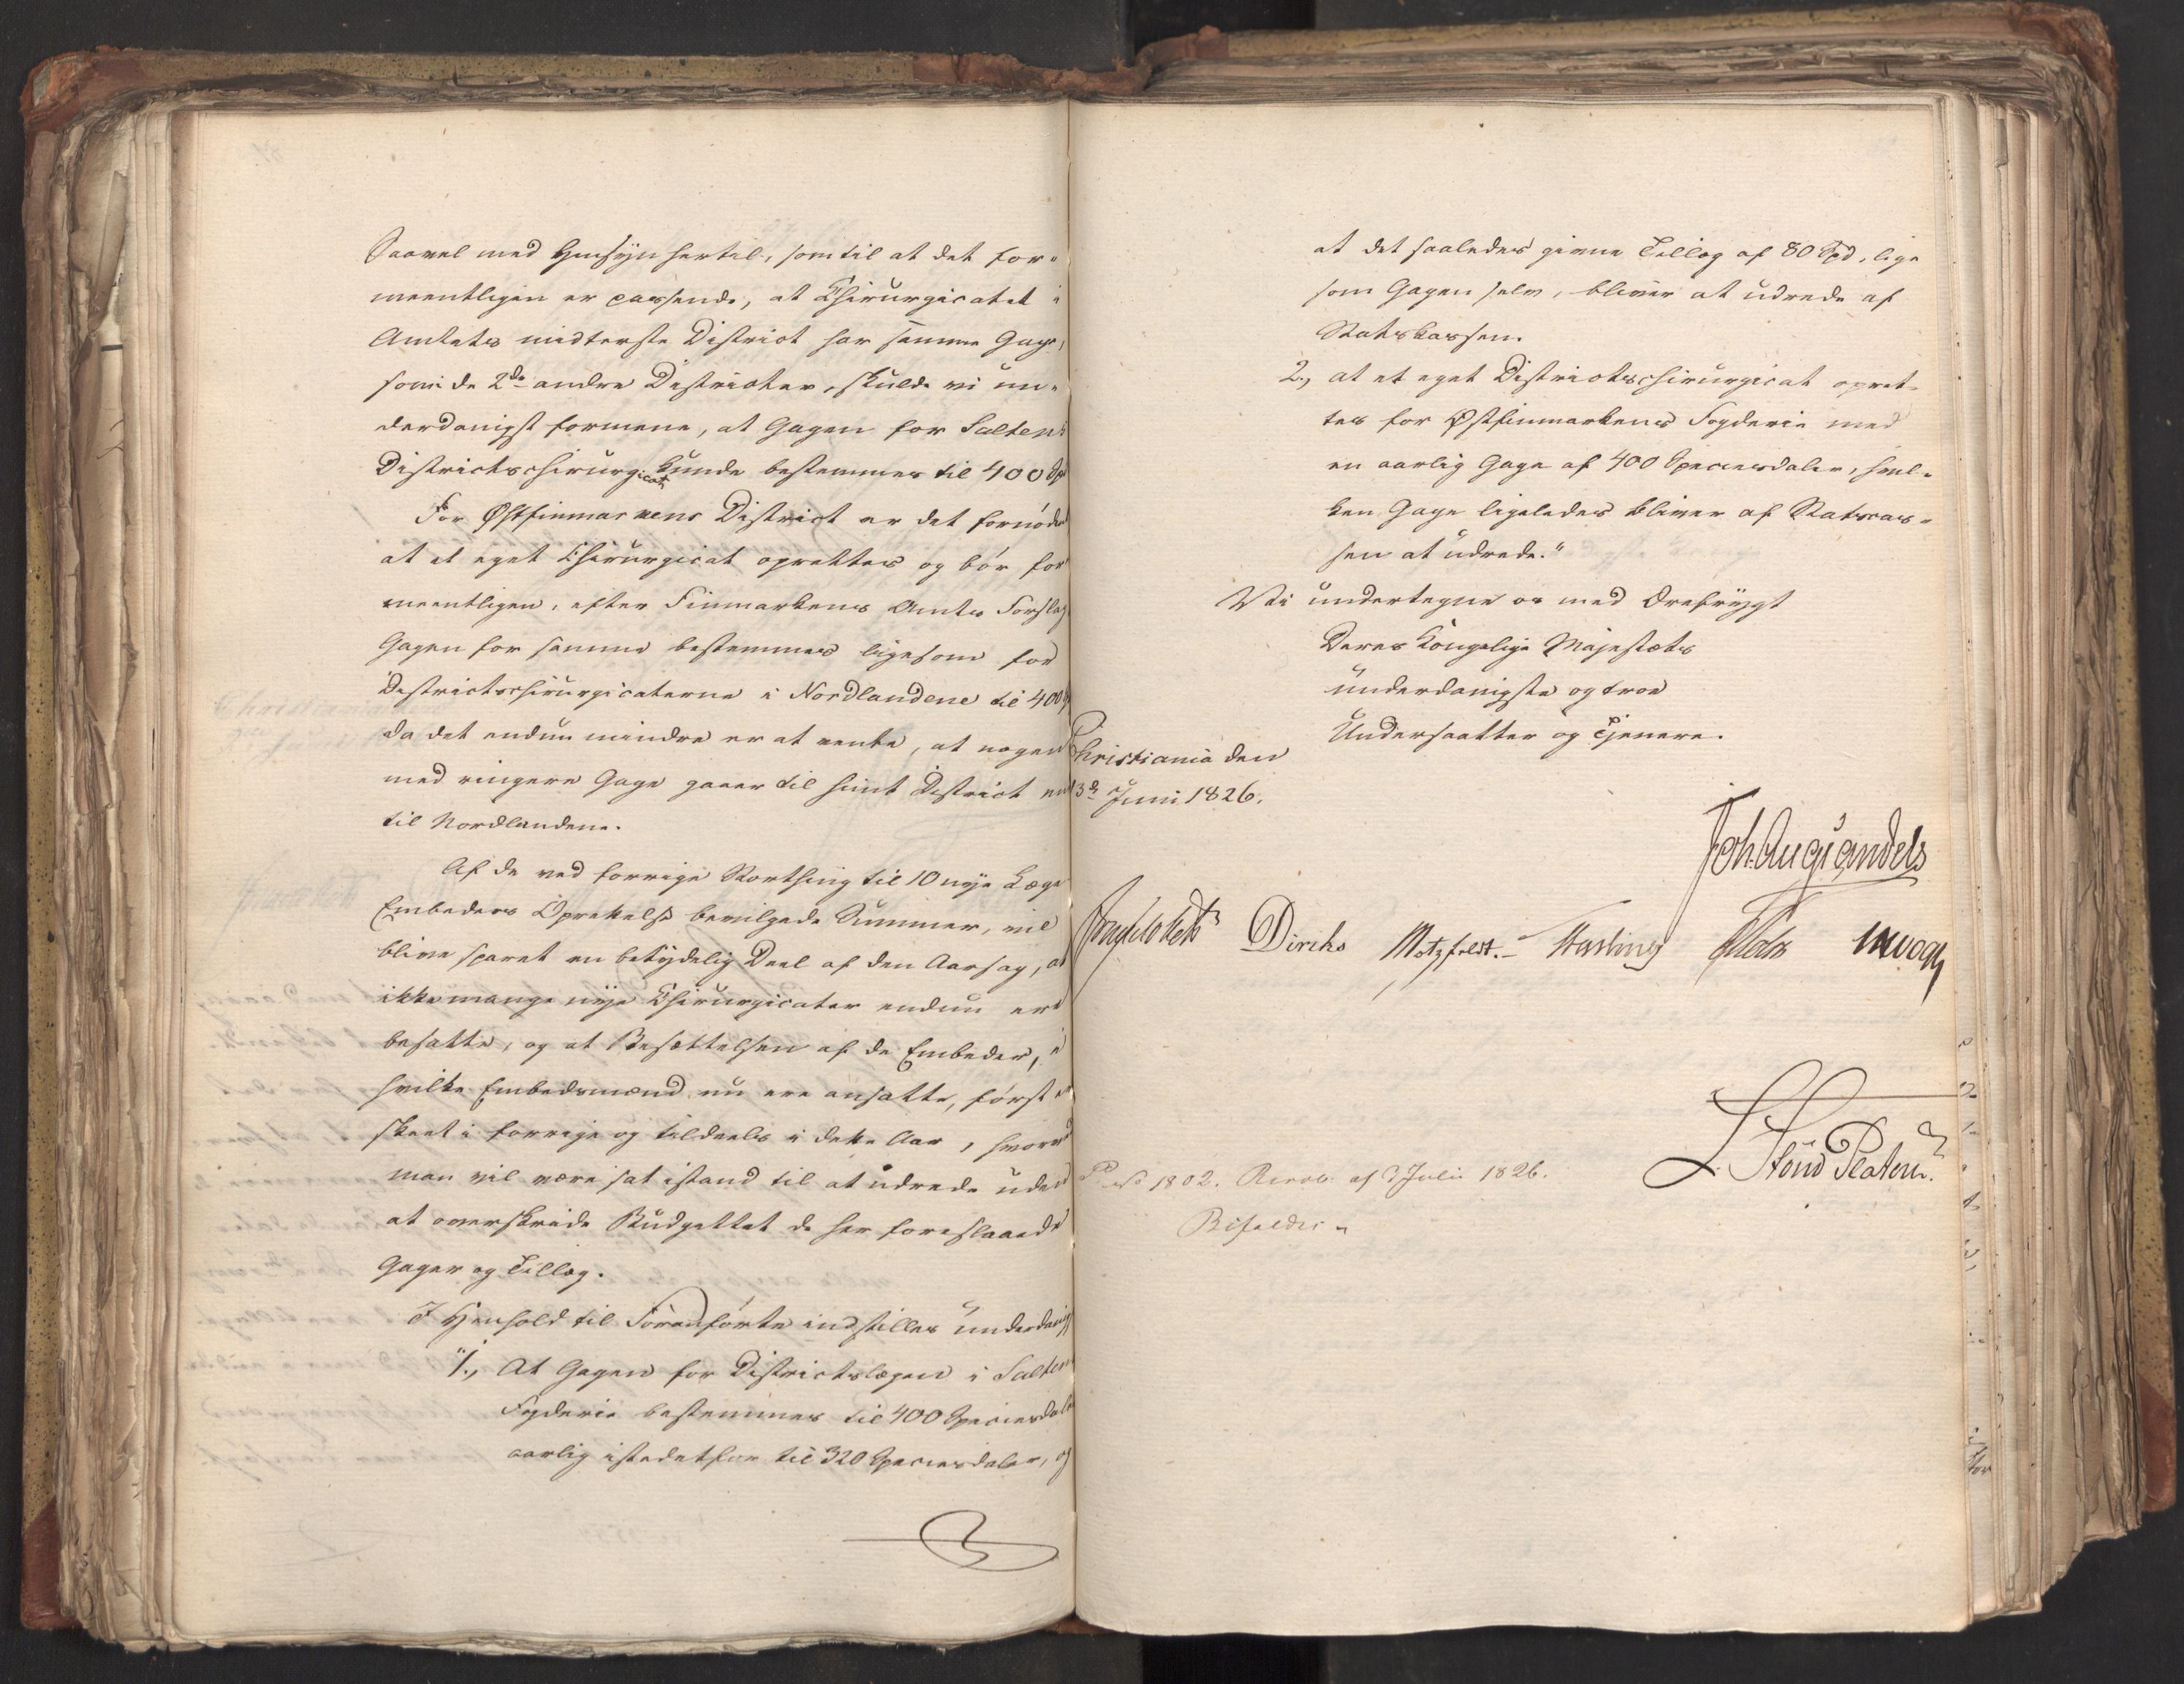 Saavel med Hensyn hertil, som til at det for-
meentligen er passende, at Chirurgicatet i
Amtets midterste District har samme Gage,
som i de 2de andre Districter, skulde vi un-
derdanigst formene, at Gagen for Saltens
Districtschirurgicat kunde bestemmes til 400 Spd
For Østfinmarkens District er det fornødent
at et eget Chirurgicat oprettes og bør for
meentligen, efter Finmarkens Amts Forslag
Gagen for samme bestemmes ligesom for
Districtschirurgicaterne i Nordlandene til 400
da det endnu mindre er at vente, at nogen
med ringere Gage gaaer til hiint District end
til Nordlandene.
Af de ved forrige Storthing til 10 nye Læge
Embeders Oprettelse bevilgede Summer, vil
blive sparet en betydelig Deel af den Aarsag, at
ikke mange nye Chirurgicater endnu ere
besatte, og at Besættelsen af de Embeder, i
hvilke Embedsmænd nu ere ansatte, først er
skeet i forrige og tildeels i dette Aar, hvorved
man vil være sat istand til at udrede uden
at overskride Budgettet de her foreslaaede
Gager og Tillæg.
I Henhold til Foranførte indstilles underdanigst
"1., At Gagen for Districtslægen i Saltens
Fogderie bestemmes til 400 Speciesdaler
aarlig istedetfor til 320 Speciesdaler, og
at det saaledes givne Tillæg af 80 Spd, lige
som Gagen selv, bliver at udrede af
Statskassen.
2., at et eget Districtschirurgicat opret-
tes for Østfinmarkens Fogderie med
en aarlig Gage af 400 Speciesdaler, hvil-
ken Gage ligeledes bliver af Statscas-
sen at udrede."
Vi undertegne os med Ærefrygt
Deres Kongelige Majestæts
underdanigste og troe
Undersaatter og Tjenere.
Christiania den
3d Juni 1826.
Joh. Aug. Sandels
Diriks Motzfeldt. Fasting
L. v Platen
1802. Resol. af Juli 1826.
Bifaldes